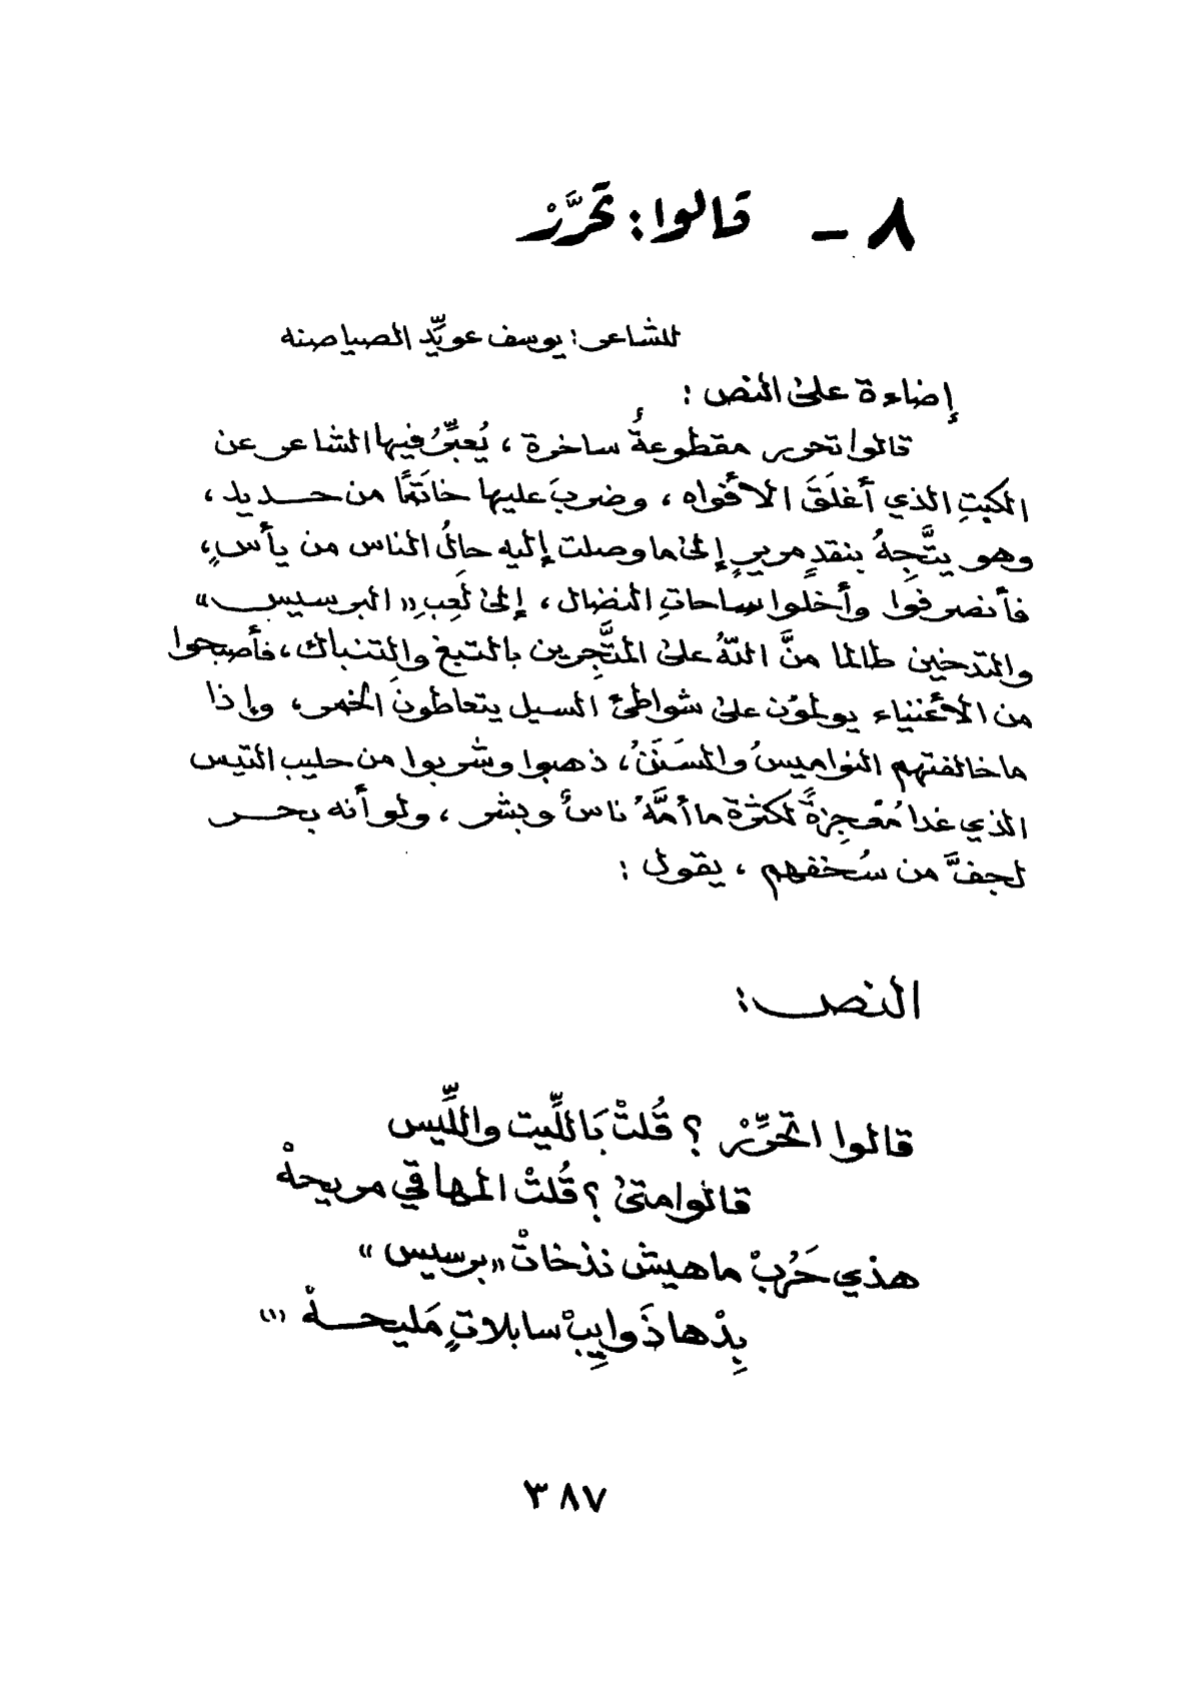 ٨ - قالوا: تحرَّرْ
للشاعر: يوسف عويِّد الصياصنه
إضاءة على النص :
قالوا تحرر مقطوعةٌ ساخرة ، يُعبِّرُ فيها الشاعر عن
الكبتِ الذي أغلَقَ الأفواه ، وضربَ عليها خاتَمًا من حـديد ،
وهو يتَّجِهُ بنقدٍ مريرٍ إلى ما وصلت إليه حالُ الناس من يأسٍ،
فأنصرفوا وأخلَوا ساحاتِ النضال ، إلى لَعِبِ «البرسيس»
والتدخين طالما منَّ اللّهُ على المتَّجِرين بالتبغ والتنباك ، فأصبحوا
من الأغنياء يولمون على شواطئ السيل يتعاطونَ الخمر ، وإذا
ما خالفتهم النواميسُ والسَنَنُ ، ذهبوا وشربوا من حليب التيس
الذي غدا مُعجِزةً لكثرة ما أمَّهُ ناسٌ وبشر ، ولو أنه بحـر
لجفَّ من سُخفهم ، يقول :
النص :
قالوا اتحرِّرْ ؟ قُلتْ بَاللِّيت واللِّيس
قالوا متى ؟ قُلتْ المهاقي مريحهْ
هذي حَرُبْ ماهيش نذخاتْ «برسيس»
بِدْها ذَوايِبْ سابلاتٍ مَليحـهْ (١)
٣٨٧